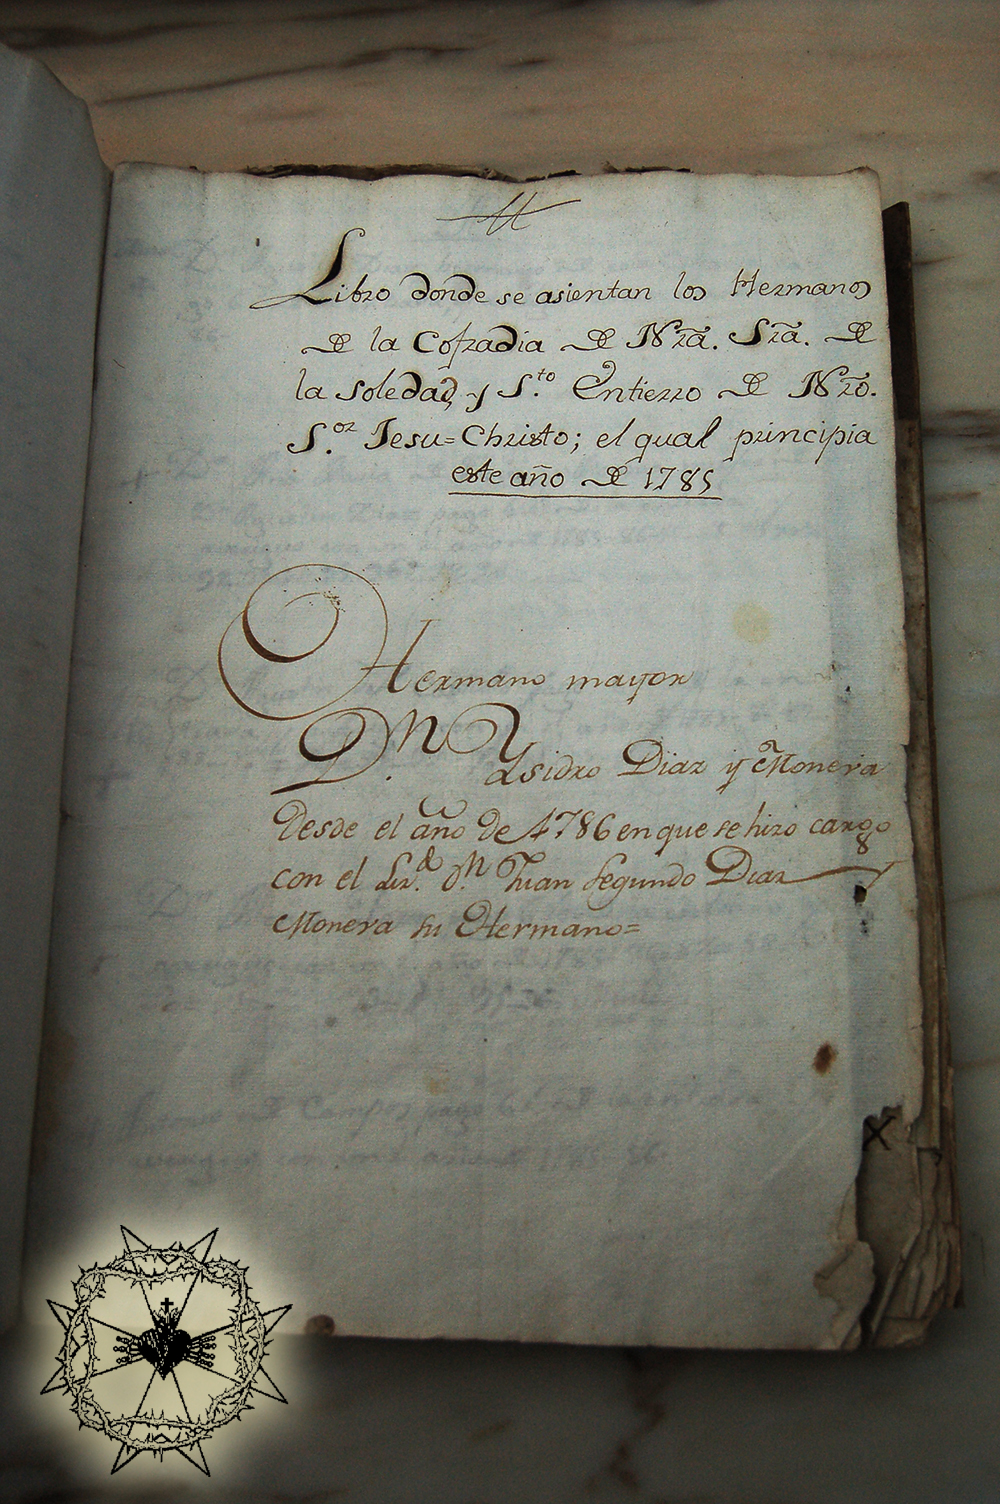 Libro donde se asientan los Hermanos
de la Cofradia de Nra. Sra. de
la Soledad, y S.to Entierro de Nro.
S.or Jesu=Christo; el qual principia
este año de 1785
Hermano mayor
D.n Ysidro Diaz y Monera
Desde el año de 1786 en que se hizo cargo
con el Liz.do D.n Juan Segundo Diaz y
Monera su Hermano=